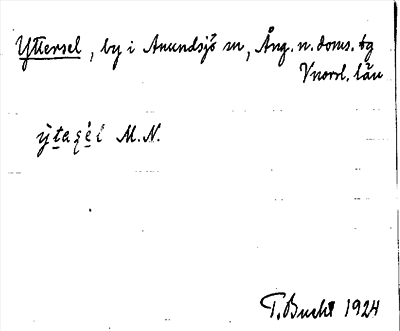 Yttersel, by i Anundsjö sn, Ång. n. doms. tg
Vnorrl. län
M. N.
T. Bucht 1924